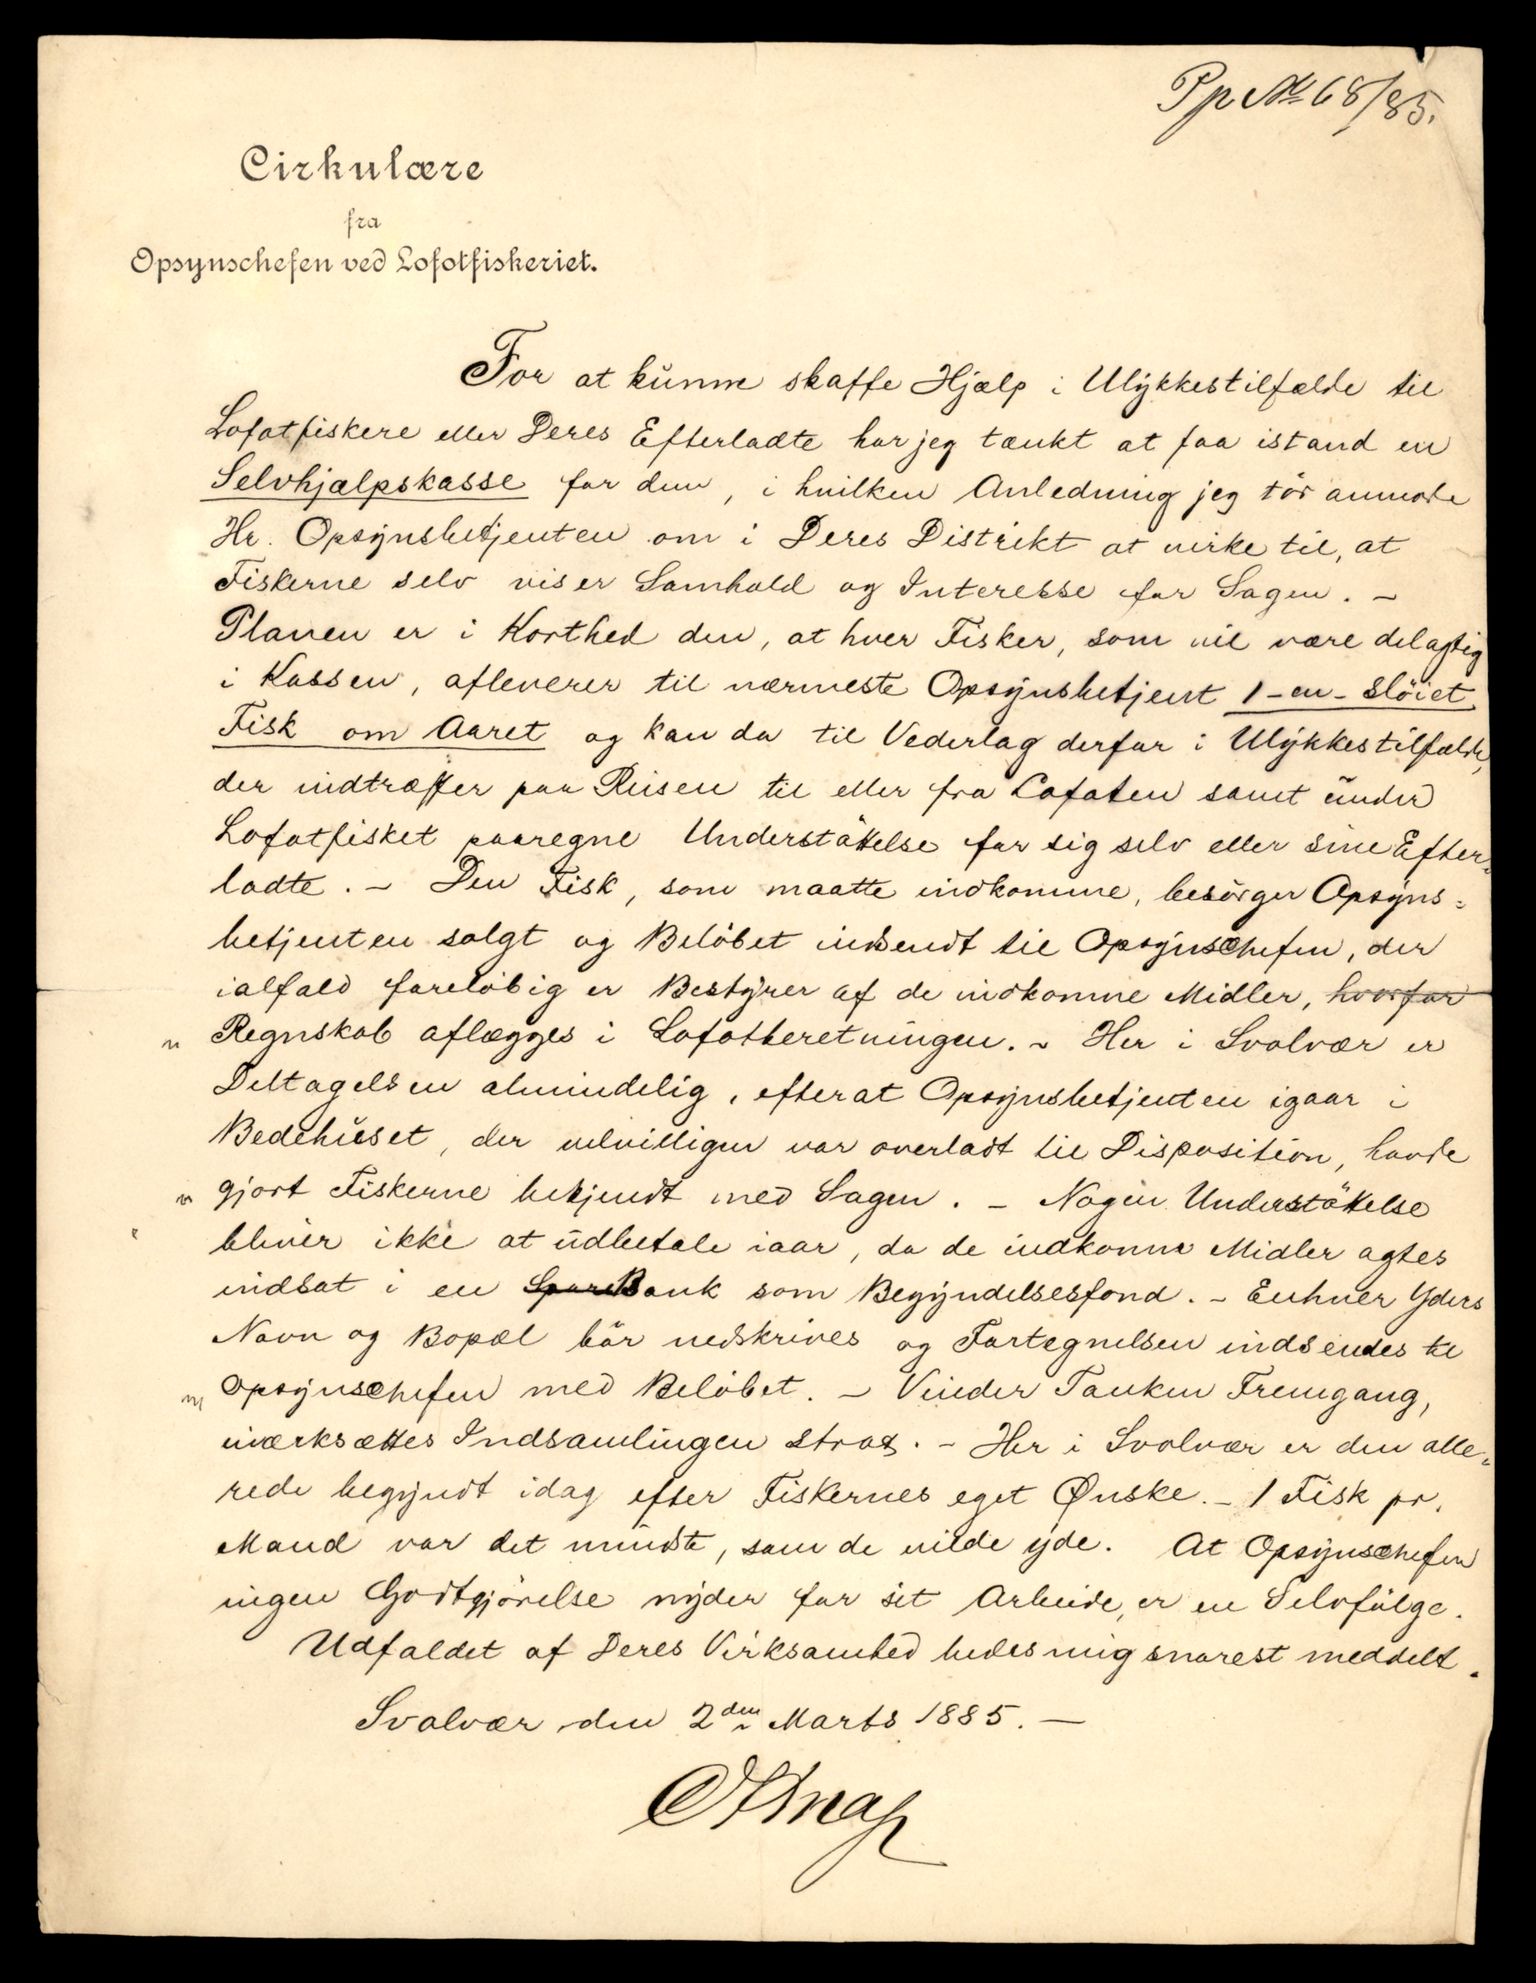 Pp № 68/85.
Cirkulære
fra
Opsynschefen ved Lofotfiskeriet.
For at kunne skaffe Hjælp i Ulykkestilfælde til
Lofotfiskere eller Deres Efterladte har jeg tænkt at faa istand en
Selvhjælpskasse for dem, i hvilken Anledning jeg tör anmode
Hr. Opsynsbetjenten om i Deres Distrikt at virke til, at
Fiskerne selv viser Samhold og Interesse for Sagen. –
Planen er i Korthed den, at hver Fisker, som vil være delagtig
i Kassen, afleverer til nærmeste Opsynsbetjent 1 – en – slöiet
Fisk om Aaret og kan da til Vederlag derfor i Ulykkestilfælde,
der indtræffer paa Reisen til eller fra Lofoten samt under
Lofotfisket paaregne Understöttelse for sig selv eller sine Efter-
ladte. – Den Fisk, som maatte indkomme, besörger Opsyns-
betjenten solgt og Belöbet indsendt til Opsynschefen, der
ialfald forelöbig er Bestyrer af de indkomne Midler, hvorfor
Regnskab aflægges i Lofotberetningen. – Her i Svolvær er
Deltagelsen almindelig, efterat Opsynsbetjenten igaar i
Bedehuset, der velvilligen var overladt til Disposition, havde
gjort Fiskerne bekjendt med Sagen. – Nogen Understöttelse
bliver ikke at udbetale iaar, da de indkomne Midler agtes
indsat i en SpareBank som Begyndelsesfond. – Enhver Yders
Navn og Bopæl bör nedskrives og Fortegnelsen indsendes til
Opsynschefen med Belöbet. – Vinder Tanken Fremgang,
iværksættes Indsamlingen strax. – Her i Svolvær er den alle-
rede begyndt idag efter Fiskernes eget Ønske. – 1 Fisk pr.
Mand var det mindste, som de vilde yde. At Opsynschefen
ingen Godtgjörelse nyder for sit Arbeide, er en Selvfölge.
Udfaldet af Deres Virksomhed bedes mig snarest meddelt.
Svolvær den 2den Marts 1885. –